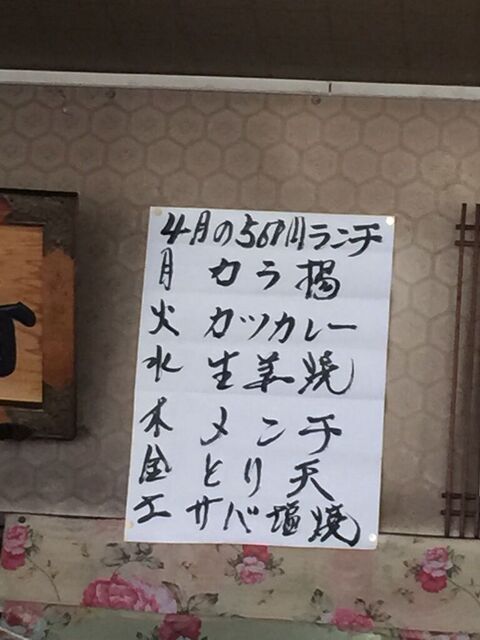 4月の500円ランチ
月 カラ揚
火 カツカレー
水 生姜焼
木 メンチ
金 とり天
土 サバ塩焼
す